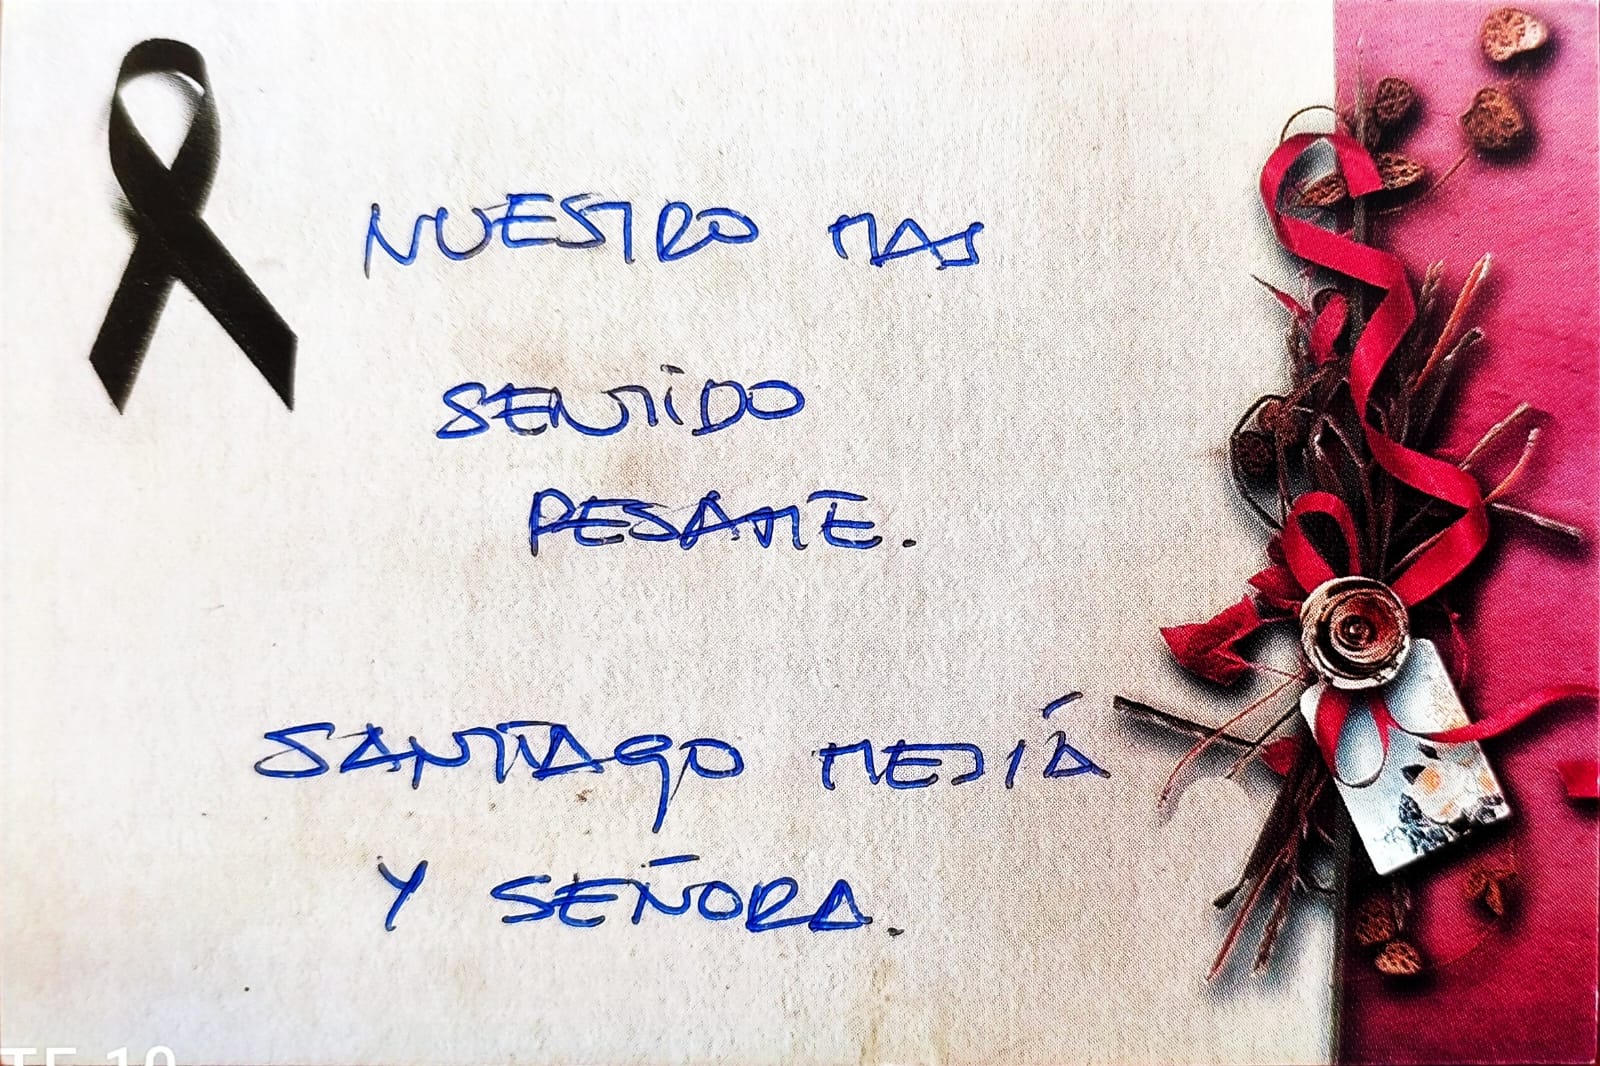 NUESTRO MAS
SENTIDO
PESAME.
SANTIAGO MEJIÁ
Y SEÑORA.